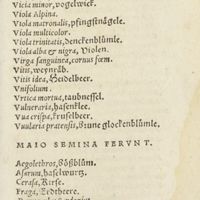 Vicia minor, vogelwick.
Viola Alpina.
Viola matronalis, pfingstnägele.
Viola multicolor.
Viola trinitatis, denckenblümle.
Viola alba & nigra, Violen.
Virga sanguinea, cornus fœm.
Vitis, weynräb.
Vitis idea, Heidelbeer.
Vnifolium.
Vrtica mortua, taubnessel.
Vulneraria, hasenklee.
Vua crispa, kruselbeer.
Vuularia pratensis, brune glockenblümle.
MAIO SEMINA FERVNT.
Aegolethros, Gößblům.
Asarum, haselwurtz.
Cerasa, Kirse.
Fraga, Erdtbeere.